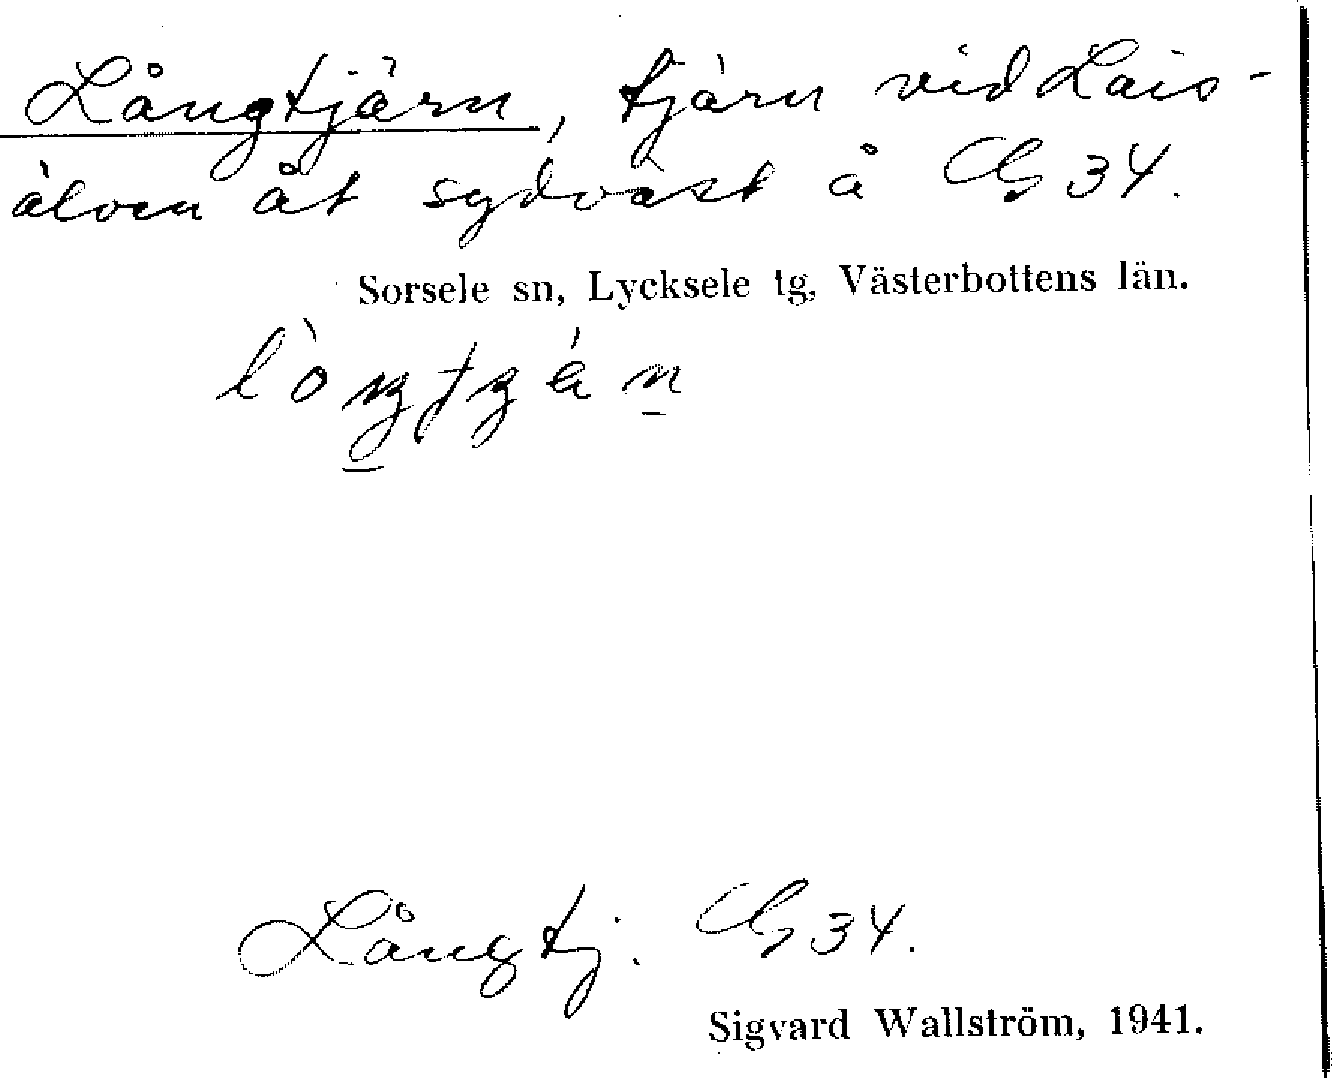 Långtjärn, tjärn vid Lais-
älven åt sydväst å G 34.
Sorsele sn, Lycksele tg, Västerbottens län.
Långtj. G 34.
Sigvard Wallström, 1941.